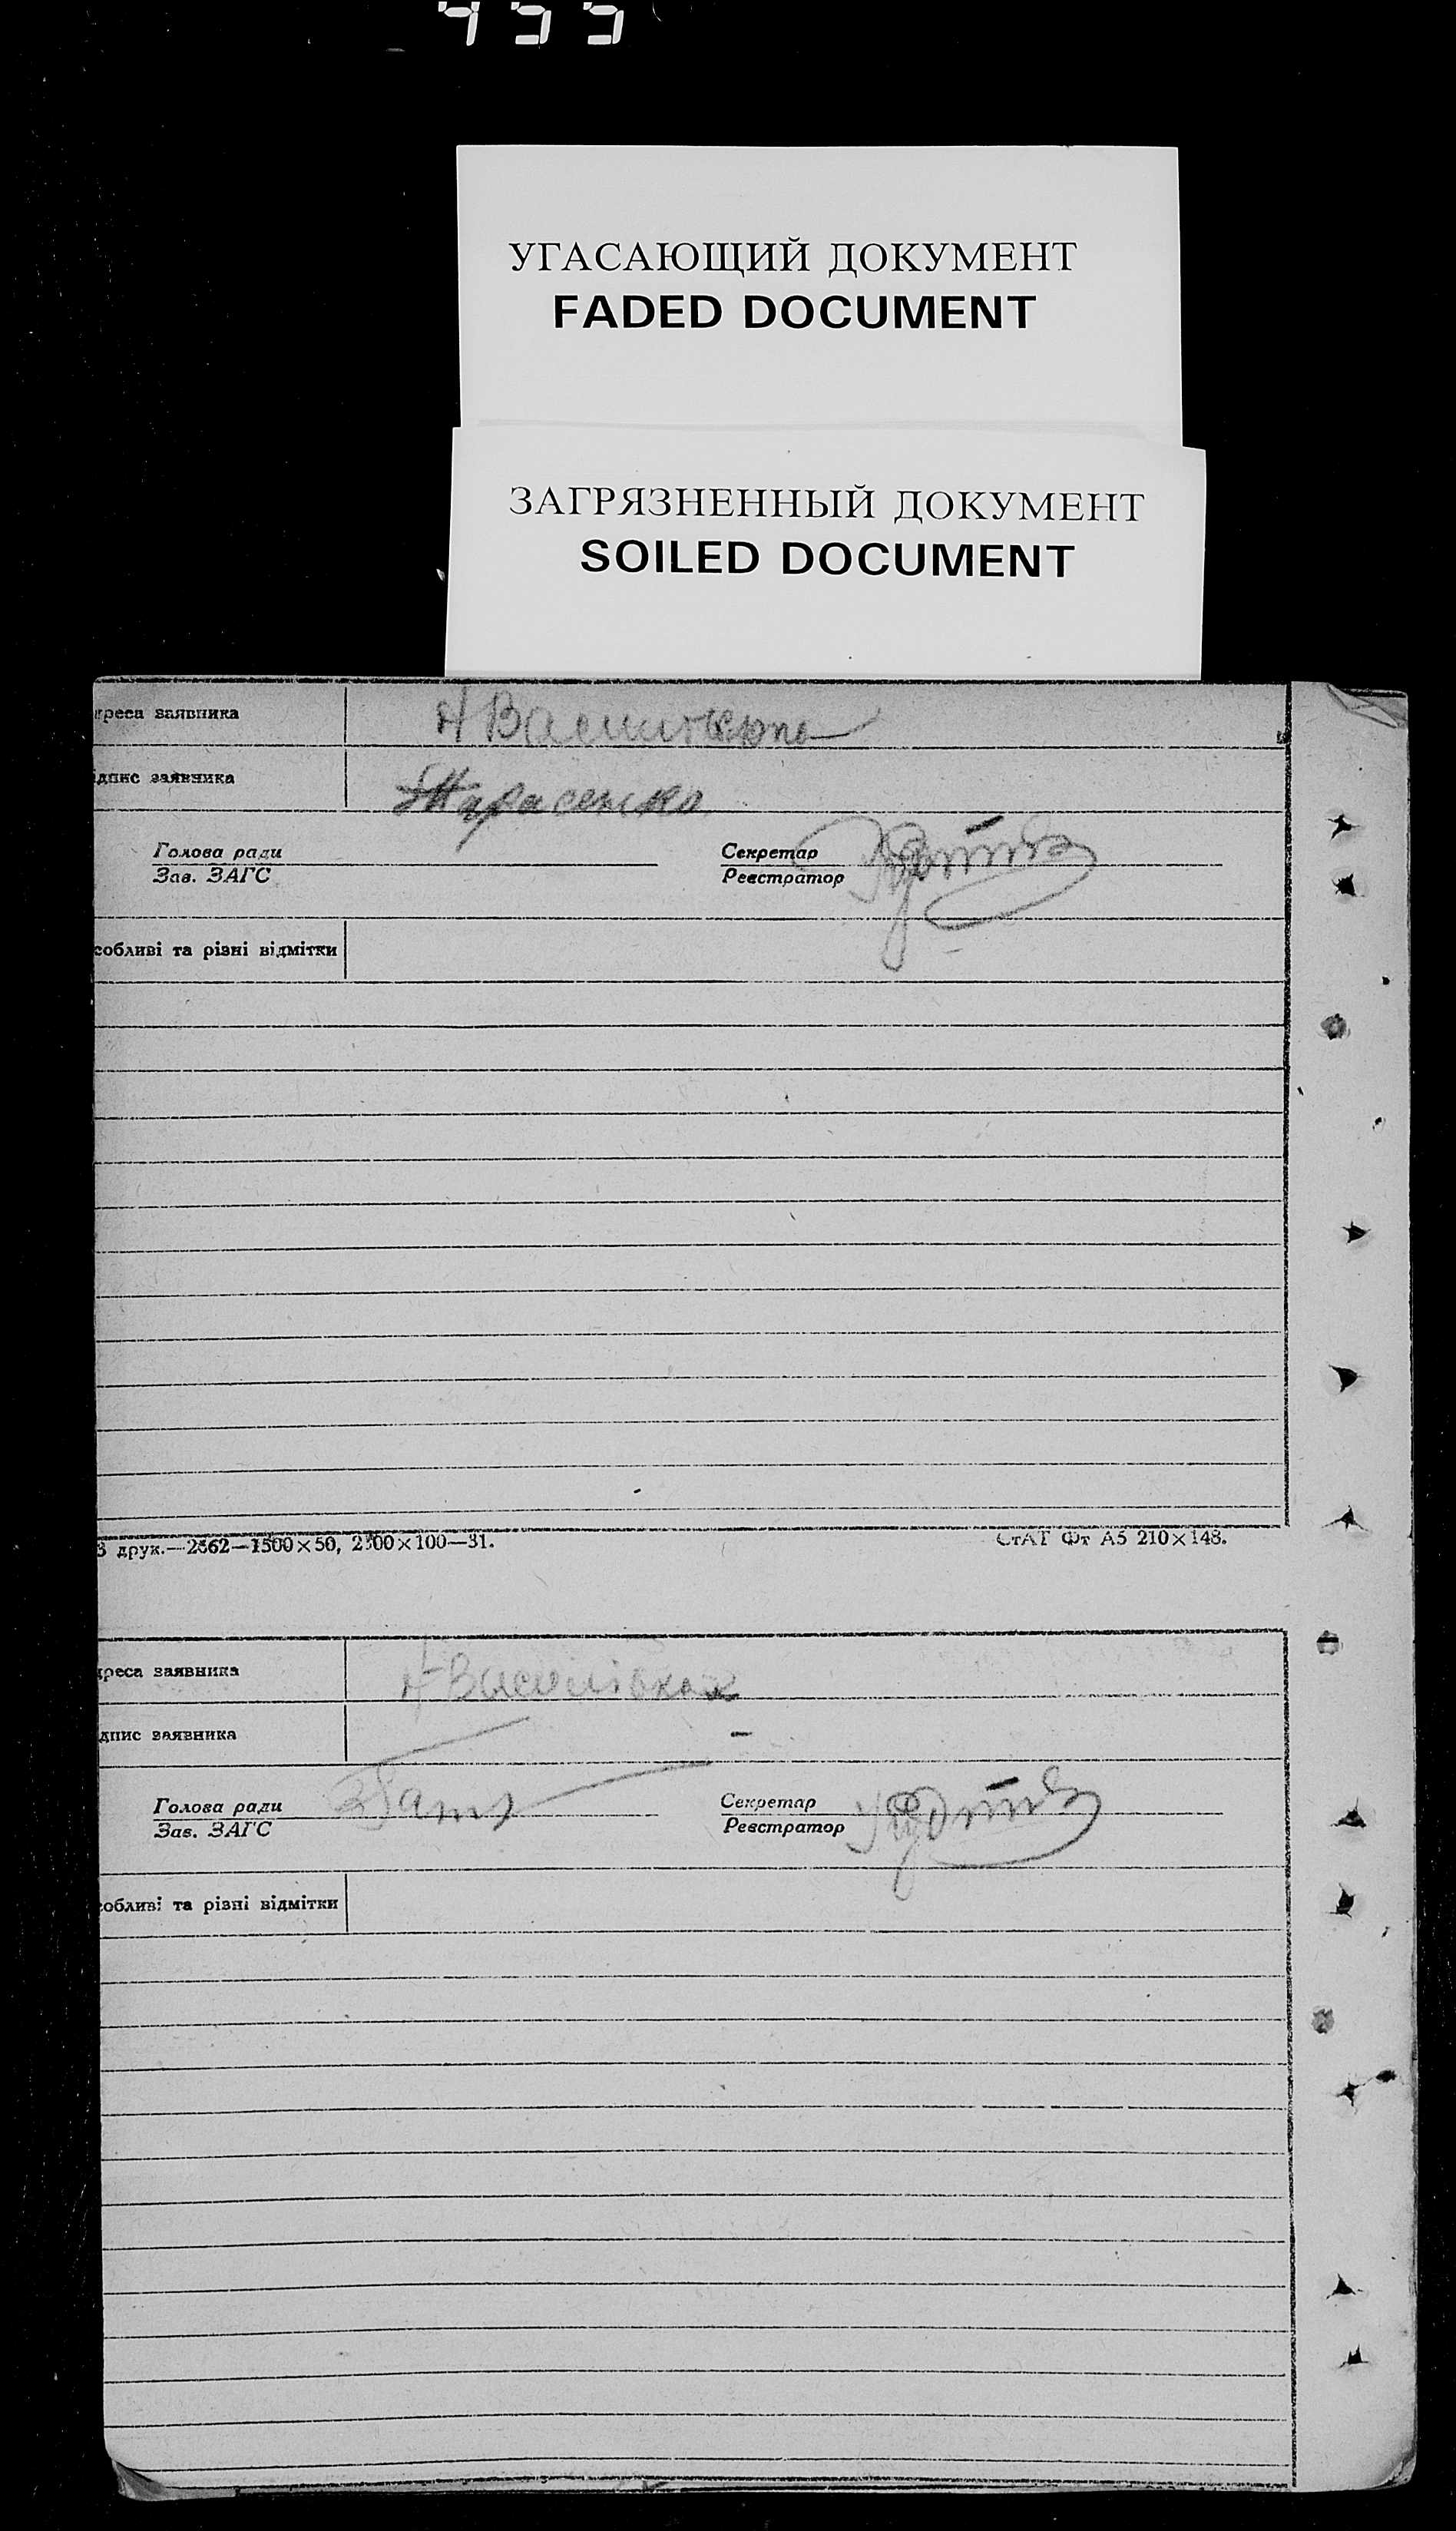 УГАСАЮЩИЙ ДОКУМЕНТ
FADED DOCUMENT
ЗАГРЯЗНЕННЫЙ ДОКУМЕНТ
SOILED DOCUMENT
реса заявника
дпис заявника Тарасенко
Голова ради Секретар
Зав. ЗАГС Реєстратор
собливі та різні відмітки
друк.—2662—1500×50, 2500×100—31. СтАТ Фт А5 210×148.
реса заявника
дпис заявника –
Голова ради Секретар
Зав. ЗАГС Реєстратор
обливі та різні відмітки